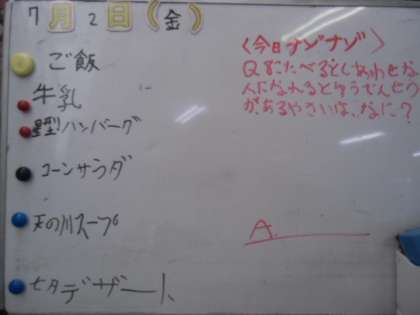 7月2日(金)
ご飯
牛乳
星型ハンバーグ
コーンサラダ
天の川スープ
七夕デザート
<今日ナゾナゾ>
Q.8こたべるとしあわせな
人になれるとゆうでんせつ
があるやさいは、なに?
A.